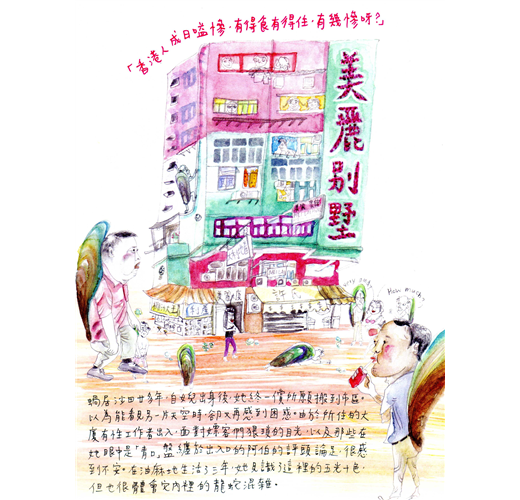 「香港人成日嗌慘，有得食有得住，有幾慘呀?」
美麗別墅
蝸居沙田廿多年，自女兒出身後，她終一償所願搬到市區。
以為能看見另一片天空時，卻又再感到困惑。由於所住的大
廈有性工作者出入，面對嫖客們狠瑣的目光，以及那些在
她眼中是「青口」盤纏於出入口的阿伯的評頭論足，很感
到不安。在油麻地生活了三年，她見識了這裡的五光十色，
但也很體會它內裡的龍蛇混雜。